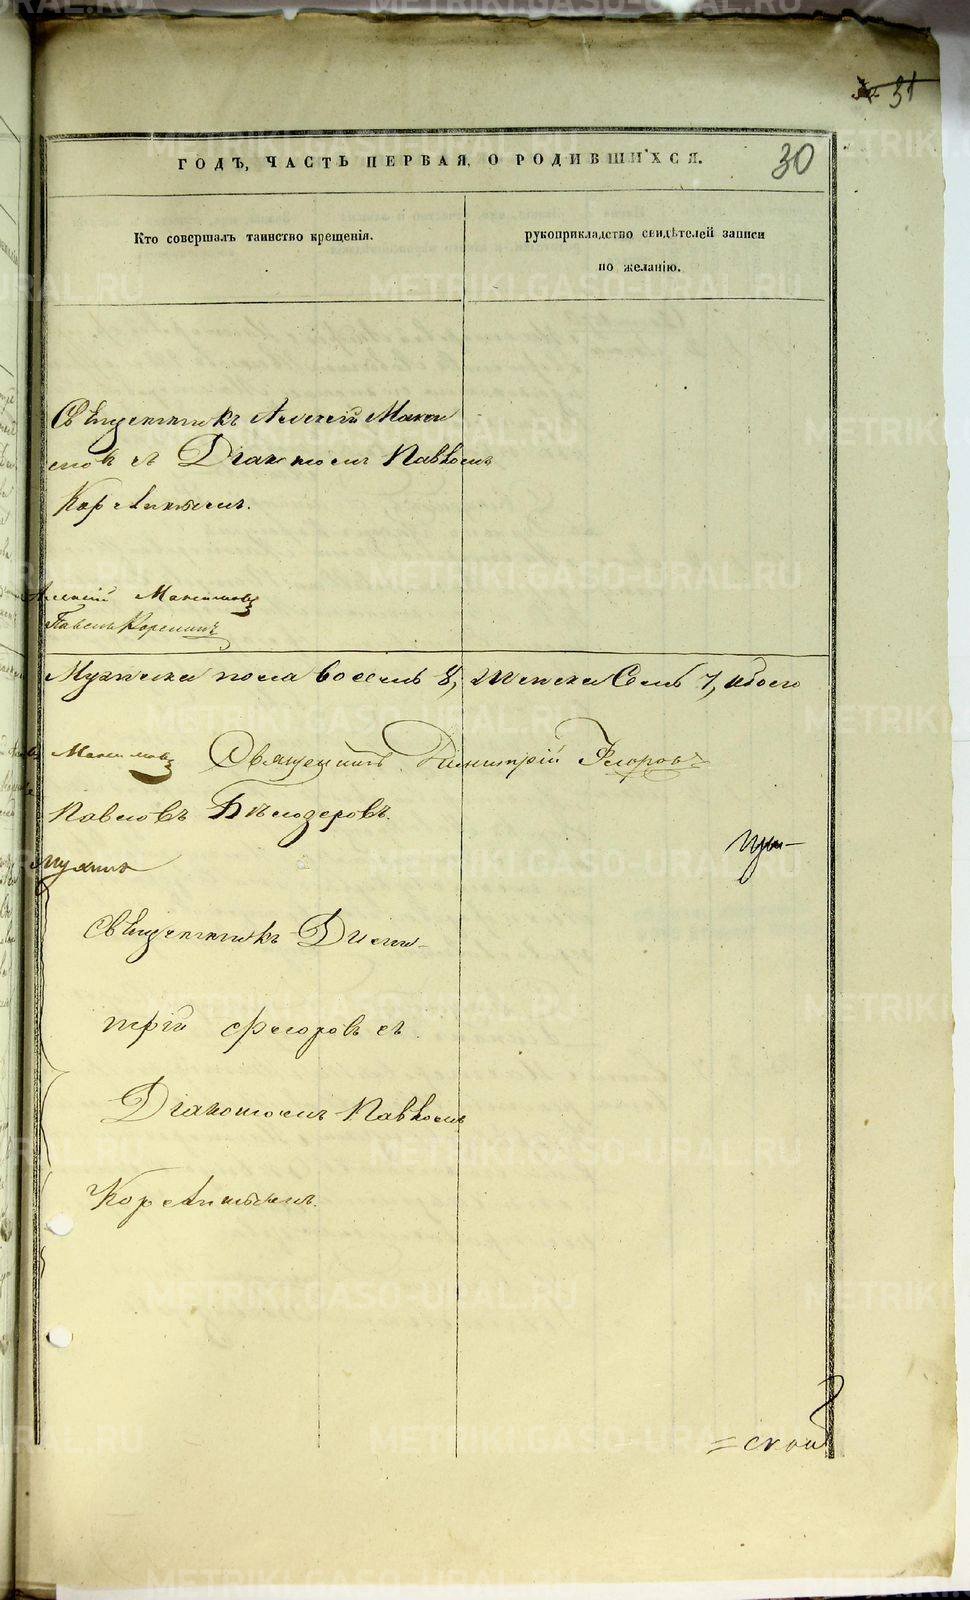 31
ГОДЪ, ЧАСТЬ ПЕРВАЯ, О РОДИВШИХСЯ.
30
Кто совершалъ таинство крещенія.
рукоприкладство свидѣтелей записи
по желанію.
Священникъ Алексій Макси
мовъ съ Діакономъ Павломъ
Корелинымъ.
Алексій Максимовъ
Павелъ Корелинъ
Мужеска пола восемь 8, Женска Семь 7, обоего
Максимовъ Священникъ Димитрій Феоровъ
Павловъ Бѣлозеровъ.
при-
Священникъ Дими-
трій Феоровъ съ
Діакономъ Павломъ
Корелинымъ.
=ской
METRIKI.GASO-URAL.RU